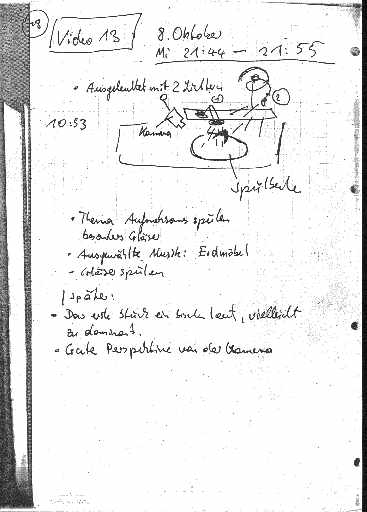 Video 13
8. Oktober
Mi 21:44 – 21:55
• Ausgeleuchtet mit 2 Lichtern
10:53
Kamera
Spülbecken
• Thema Aufnehmens spülen
besonders Gläser
• Ausgewählte Musik: Erdmöbel
– Gläser spülen
später:
• Das erste Stück ein bisschen laut, vielleicht
zu dominant.
• Gute Perspektive von der Kamera